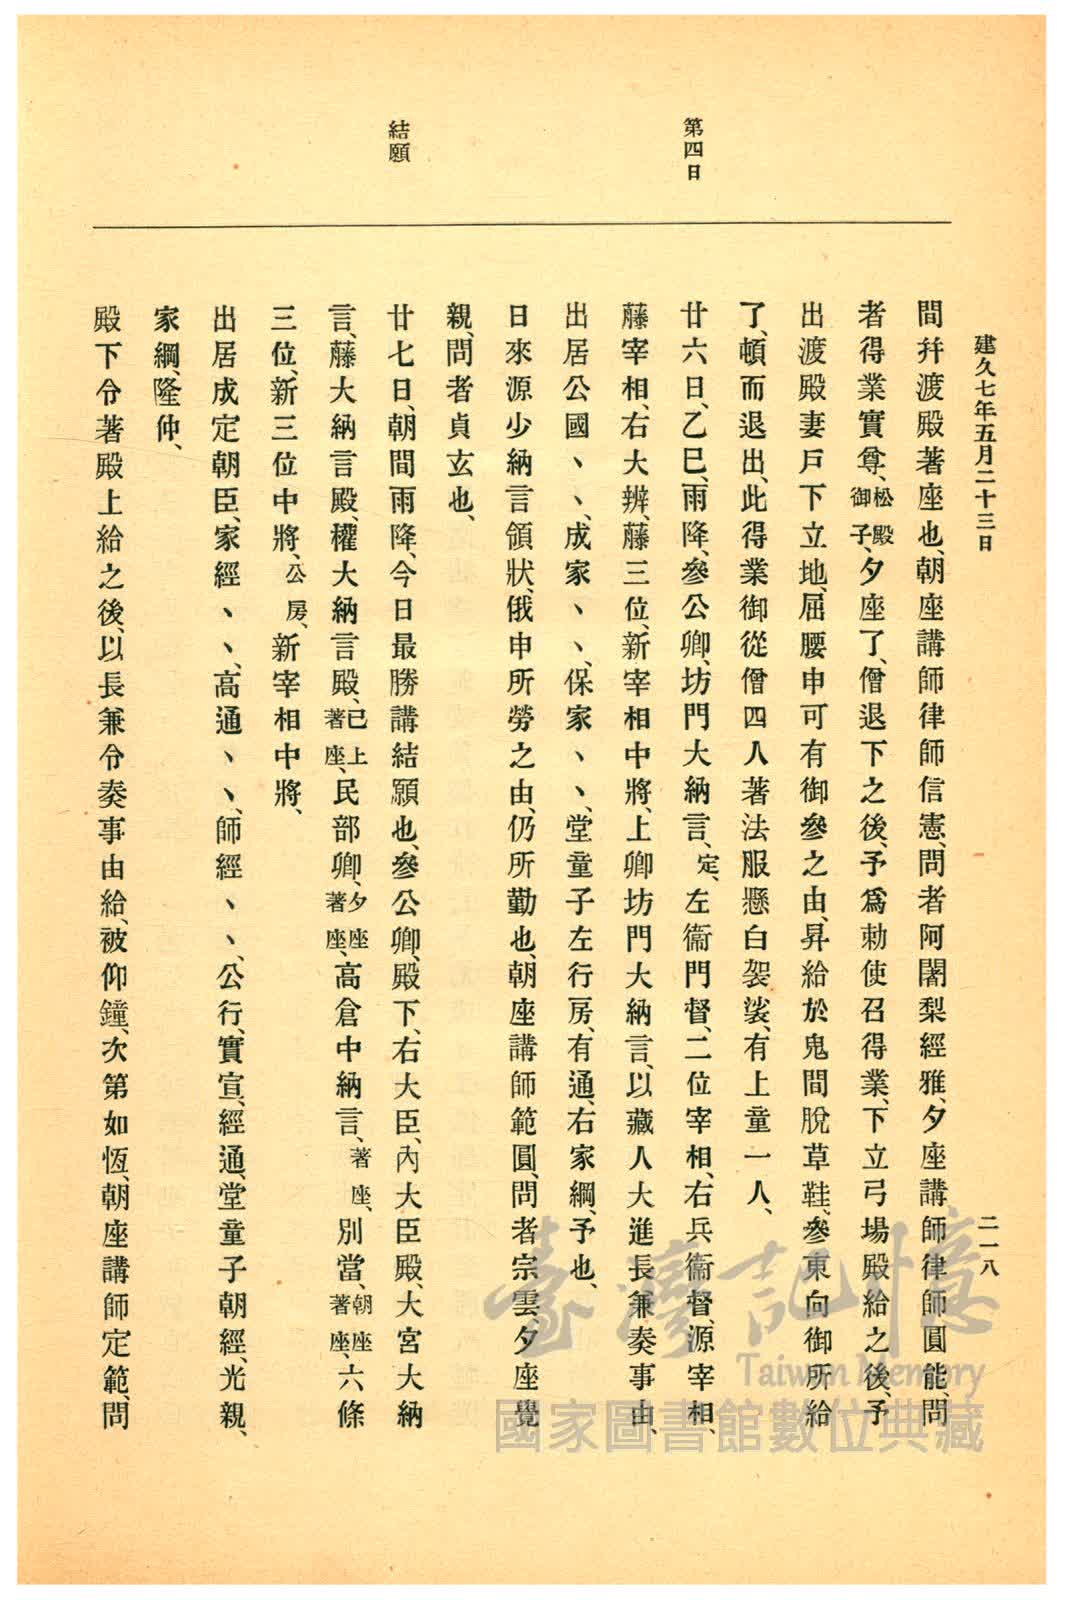 建久七年五月二十三日
二一八
第四日
結願
間幷渡殿著座也、朝座講師律師信憲、問者阿闍梨經雅、夕座講師律師圓能、問
者得業實尊、松殿御子、夕座了、僧退下之後、予爲勅使召得業、下立弓場殿給之後、予
出渡殿妻戶下立地、屈腰申可有御參之由、昇給於鬼間脫草鞋、參東向御所給
了、頓而退出、此得業御從僧四人著法服懸白袈裟、有上童一人、
廿六日、乙巳、雨降、參公卿、坊門大納言、定、左衞門督、二位宰相、右兵衞督、源宰相、
藤宰相、右大辨、藤三位、新宰相中將、上卿坊門大納言、以藏人大進長兼奏事由、
出居公國ヽヽ、成家ヽヽ、保家ヽヽ、堂童子左行房、有通、右家綱、予也、
日來源少納言領狀、俄申所勞之由、仍所勤也、朝座講師範圓、問者宗雲夕座覺
親、問者貞玄也、
廿七日、朝間雨降、今日最勝講結願也、參公卿、殿下、右大臣、內大臣殿、大宮大納
言、藤大納言殿、權大納言殿、已上著座、民部卿、夕座著座、高倉中納言、著座、別當、朝座著座、六條
三位、新三位中將、公房、新宰相中將、
出居成定朝臣、家經ヽヽ、高通ヽヽ、師經ヽヽ、公行、實宣、經通、堂童子朝經、光親、
家綱、隆仲、
殿下令著殿上給之後、以長兼令奏事由給、被仰鐘、次第如恆、朝座講師定範、問
臺灣記憶
Taiwan Memory
國家圖書館數位典藏